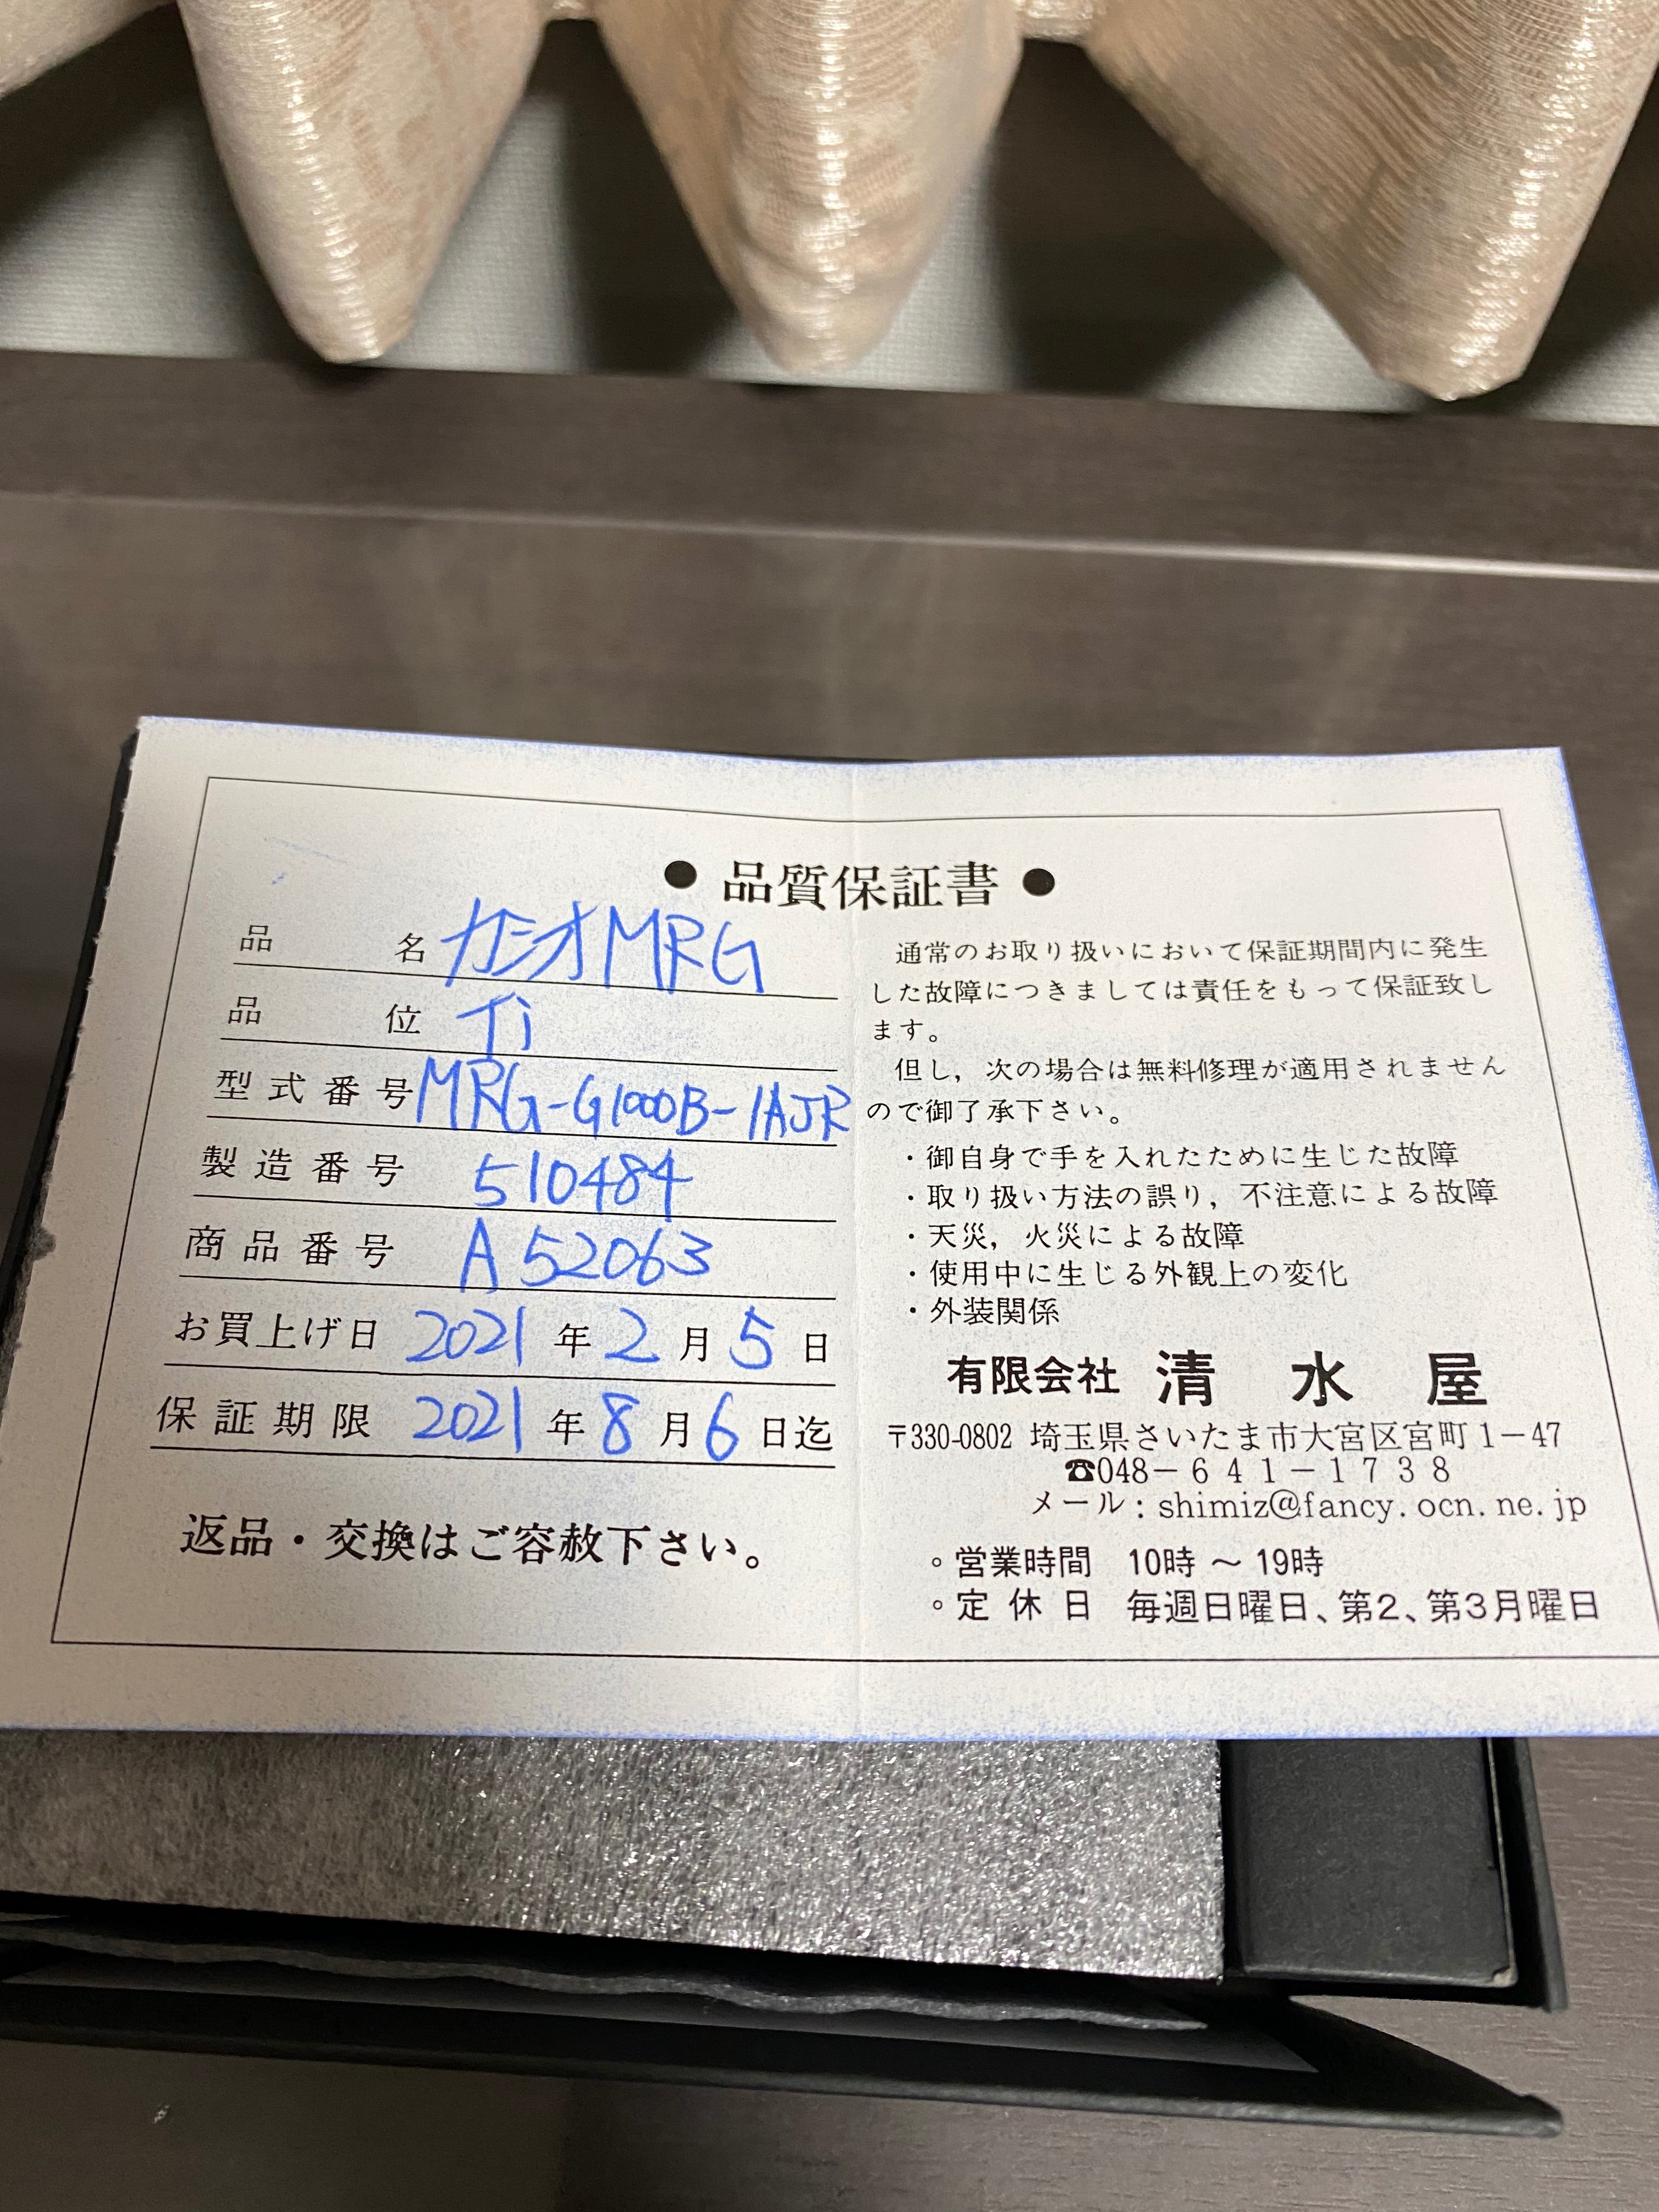 ● 品質保証書 ●
品名 カシオMRG
品位 Ti
型式番号 MRG-G1000B-1AJR
製造番号 510484
商品番号 A52063
お買上げ日 2021年2月5日
保証期限 2021年8月6日迄
返品・交換はご容赦下さい。
通常のお取り扱いにおいて保証期間内に発生
した故障につきましては責任をもって保証致し
ます。
但し，次の場合は無料修理が適用されません
ので御了承下さい。
・御自身で手を入れたために生じた故障
・取り扱い方法の誤り，不注意による故障
・天災，火災による故障
・使用中に生じる外観上の変化
・外装関係
有限会社 清水屋
〒330-0802 埼玉県さいたま市大宮区宮町1－47
☎048－641－1738
メール：shimiz@fancy.ocn.ne.jp
◦営業時間 10時～19時
◦定休日 毎週日曜日、第2、第3月曜日